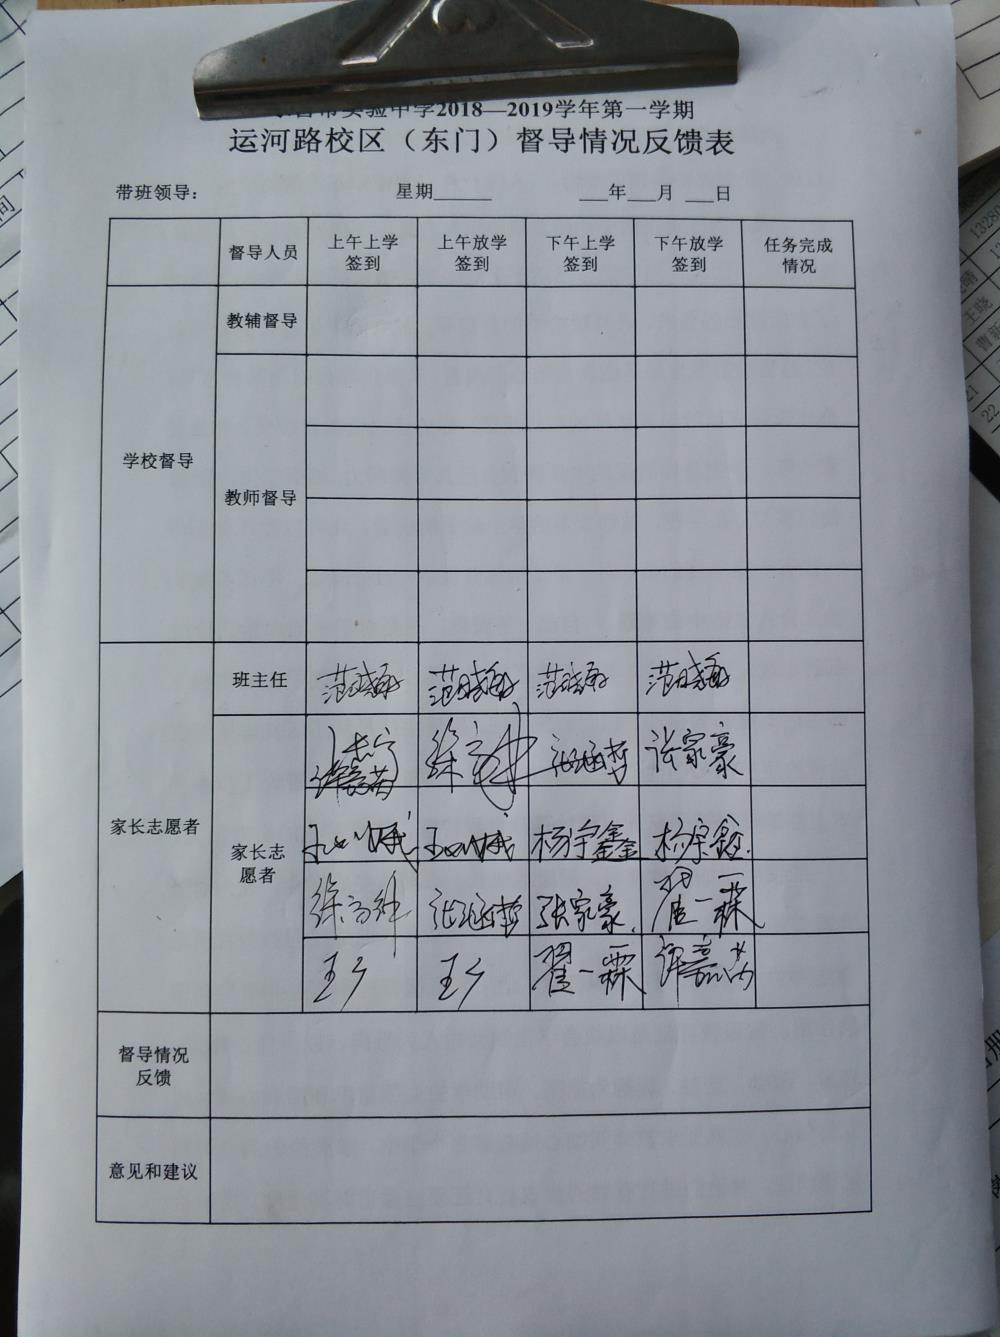 实验中学2018—2019学年第一学期
运河路校区（东门）督导情况反馈表
带班领导： 星期______ ___年___月 ___日
督导人员 上午上学签到 上午放学签到 下午上学签到 下午放学签到 任务完成情况
学校督导
教辅督导
教师督导
家长志愿者
班主任 范晓梅 范晓梅 范晓梅 范晓梅
家长志愿者
徐 张涵哲 张家豪
杨宇鑫 杨宇鑫
徐 张涵哲 张家豪 翟一霖
王 王 翟一霖
督导情况
反馈
意见和建议
13280
王晓
21
22